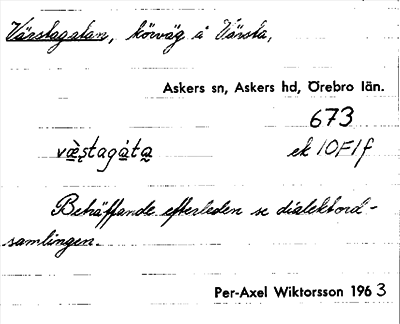 Värstagatan, körväg i Värsta,
Askers sn, Askers hd, Örebro län.
673
væ̀ʂtagáta ek 10F1f
Beträffande efterleden se dialektord-
samlingen.
Per-Axel Wiktorsson 1963